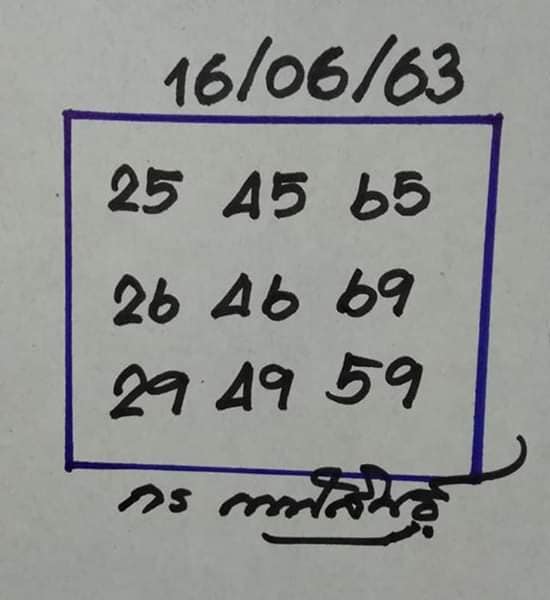 16/06/63
25 45 65
26 46 69
29 49 59
กร กาฬสินธุ์